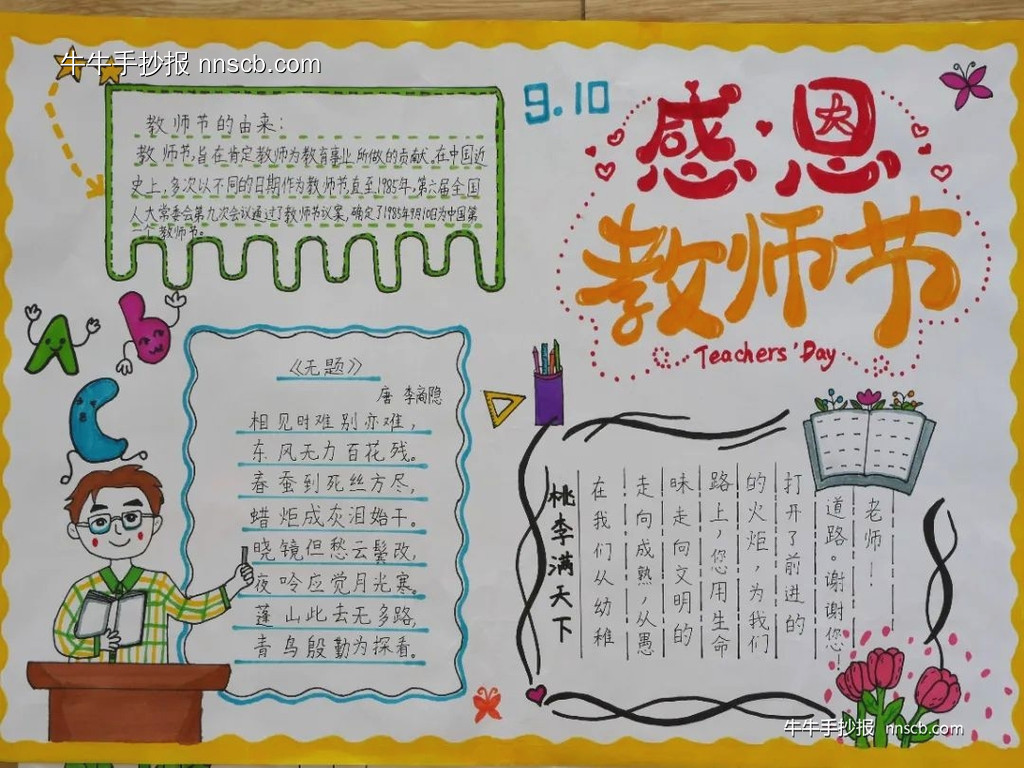 牛牛手抄报 nnscb.com
9.10
感恩
教师节
Teachers' Day
教师节的由来:
教师节,旨在肯定教师为教育事业所做的贡献。在中国近
史上,多次以不同的日期作为教师节,直至1985年,第六届全国
人大常委会第九次会议通过了教师节议案,确定了1985年9月10日为中国第
一个教师节。
A b C
《无题》
唐 李商隐
相见时难别亦难,
东风无力百花残。
春蚕到死丝方尽,
蜡炬成灰泪始干。
晓镜但愁云鬓改,
夜吟应觉月光寒。
蓬山此去无多路,
青鸟殷勤为探看。
桃李满天下
在我们从幼稚
走向成熟,从愚
昧走向文明的
路上,您用生命
的火炬,为我们
打开了前进的
道路。谢谢您!
老师!
牛牛手抄报 nnscb.com